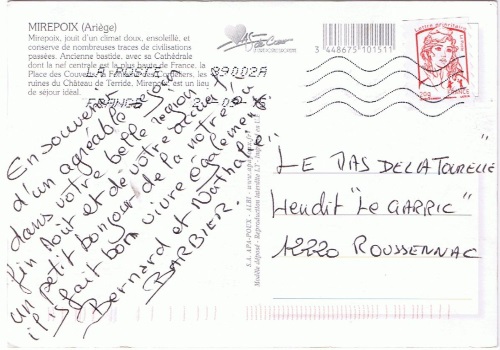 MIREPOIX (Ariège)
Mirepoix, jouit d'un climat doux, ensoleillé, et
conserve de nombreuses traces de civilisations
passées. Ancienne bastide, avec sa Cathédrale
dont la nef centrale est la plus haute de France, la
Place des Couverts, la Fontaine des Cordeliers, les
ruines du Château de Terride. Mirepoix est un lieu
de séjour idéal.
LA POSTE 39002A
FRANCE
3 448675 101511
Lettre prioritaire
20g
FRANCE
En souvenir
d'un agréable séjour
dans votre belle région
fin Août et de votre accueil,
un petit bonjour de la notre où
il fait bon vivre également.
Bernard et Nathalie
BARBIER.
S.L. APA-POUX - ALBI -
Modèle déposé - Reproduction interdite
"LE JAS DE LA TOURELLE"
Lieudit "Le GARRIC"
12220 ROUSSENNAC